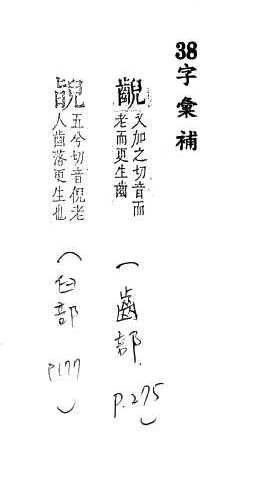 38字彙補
齯
又加之切音而
老而更生齒
（齒部.
P.275）
五兮切音倪老
人齒落更生也
（臼部
P177）